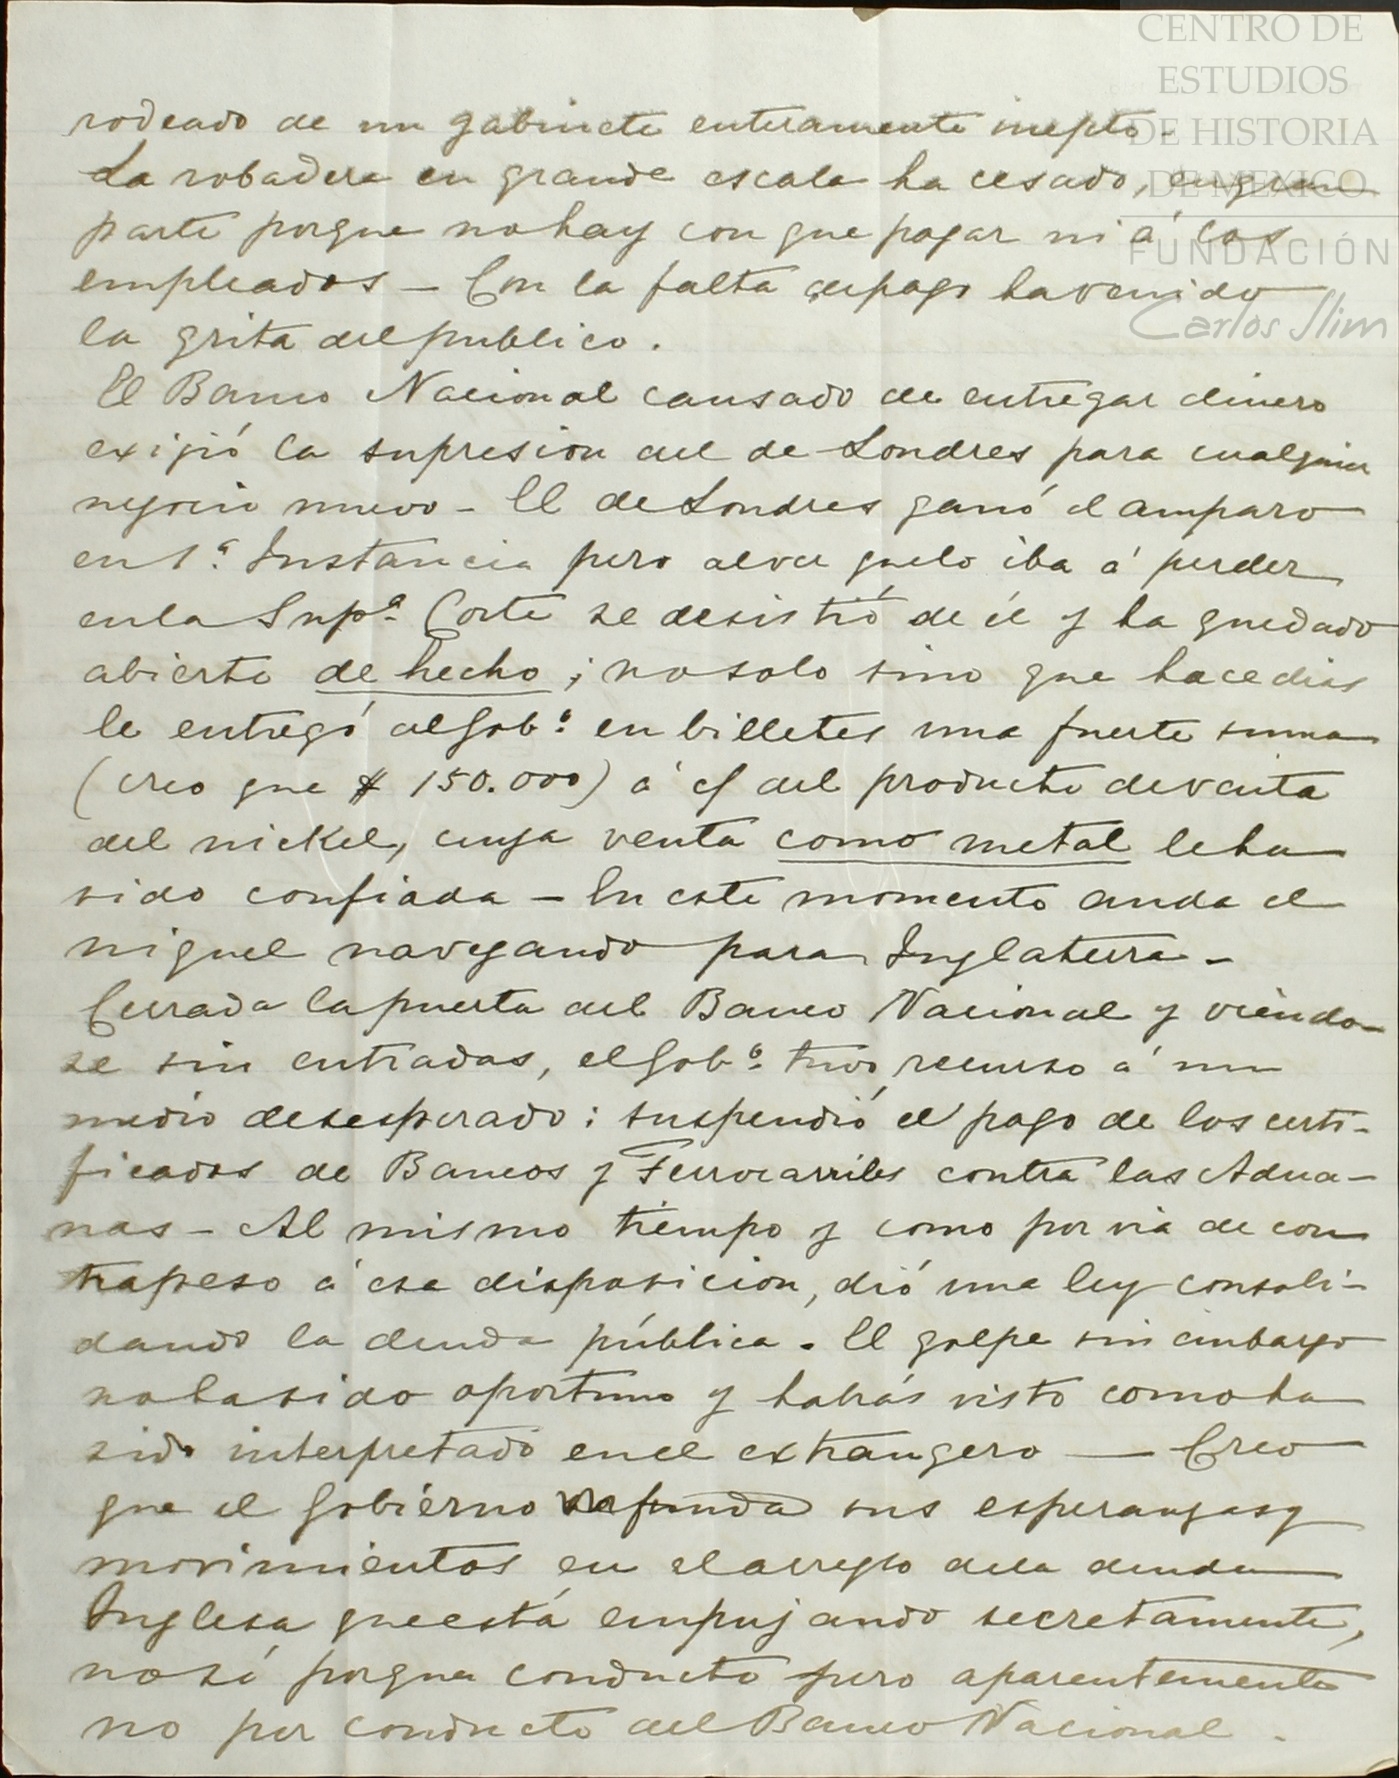 CENTRO DE
ESTUDIOS
DE HISTORIA
DE MEXICO
FUNDACIÓN
Carlos Slim
rodeado de un gabinete enteramente inepto.
La robadera en grande escala ha cesado, en gran
parte porque no hay con que pagar ni á los
empleados — Con la falta de pago ha venido
la grita del publico.
El Banco Nacional cansado de entregar dinero
exijió la supresion del de Londres para cualquier
negocio nuevo - El de Londres ganó el amparo
en 1ª. Instancia pero al ver que lo iba á perder
en la Supª. Corte se desistió de él y ha quedado
abierto de hecho; no solo sino que hace dias
le entregó al Gobº. en billetes una fuerte suma
(creo que $ 150.000) á cf del producto de venta
del nickel, cuya venta como metal le ha
sido confiada — En este momento anda el
niquel navegando para Inglaterra -
Cerrada la puerta del Banco Nacional y viendo
se sin entradas, el Gobº. tuvo recurso á un
medio desesperado: suspendió el pago de los certi-
ficados de Bancos y Ferrocarriles contra las Adua-
nas - Al mismo tiempo y como por via de con
trapeso á esa disposicion, dió una ley consoli-
dando la deuda pública. El golpe sin embargo
no ha sido oportuno y habrás visto como ha
sido interpretado en el extrangero — Creo
que el Gobierno funda sus esperanzas y
movimientos en el arreglo de la deuda
Inglesa que está empujando secretamente,
no sé porque conducto pero aparentemente
no por conducto del Banco Nacional.